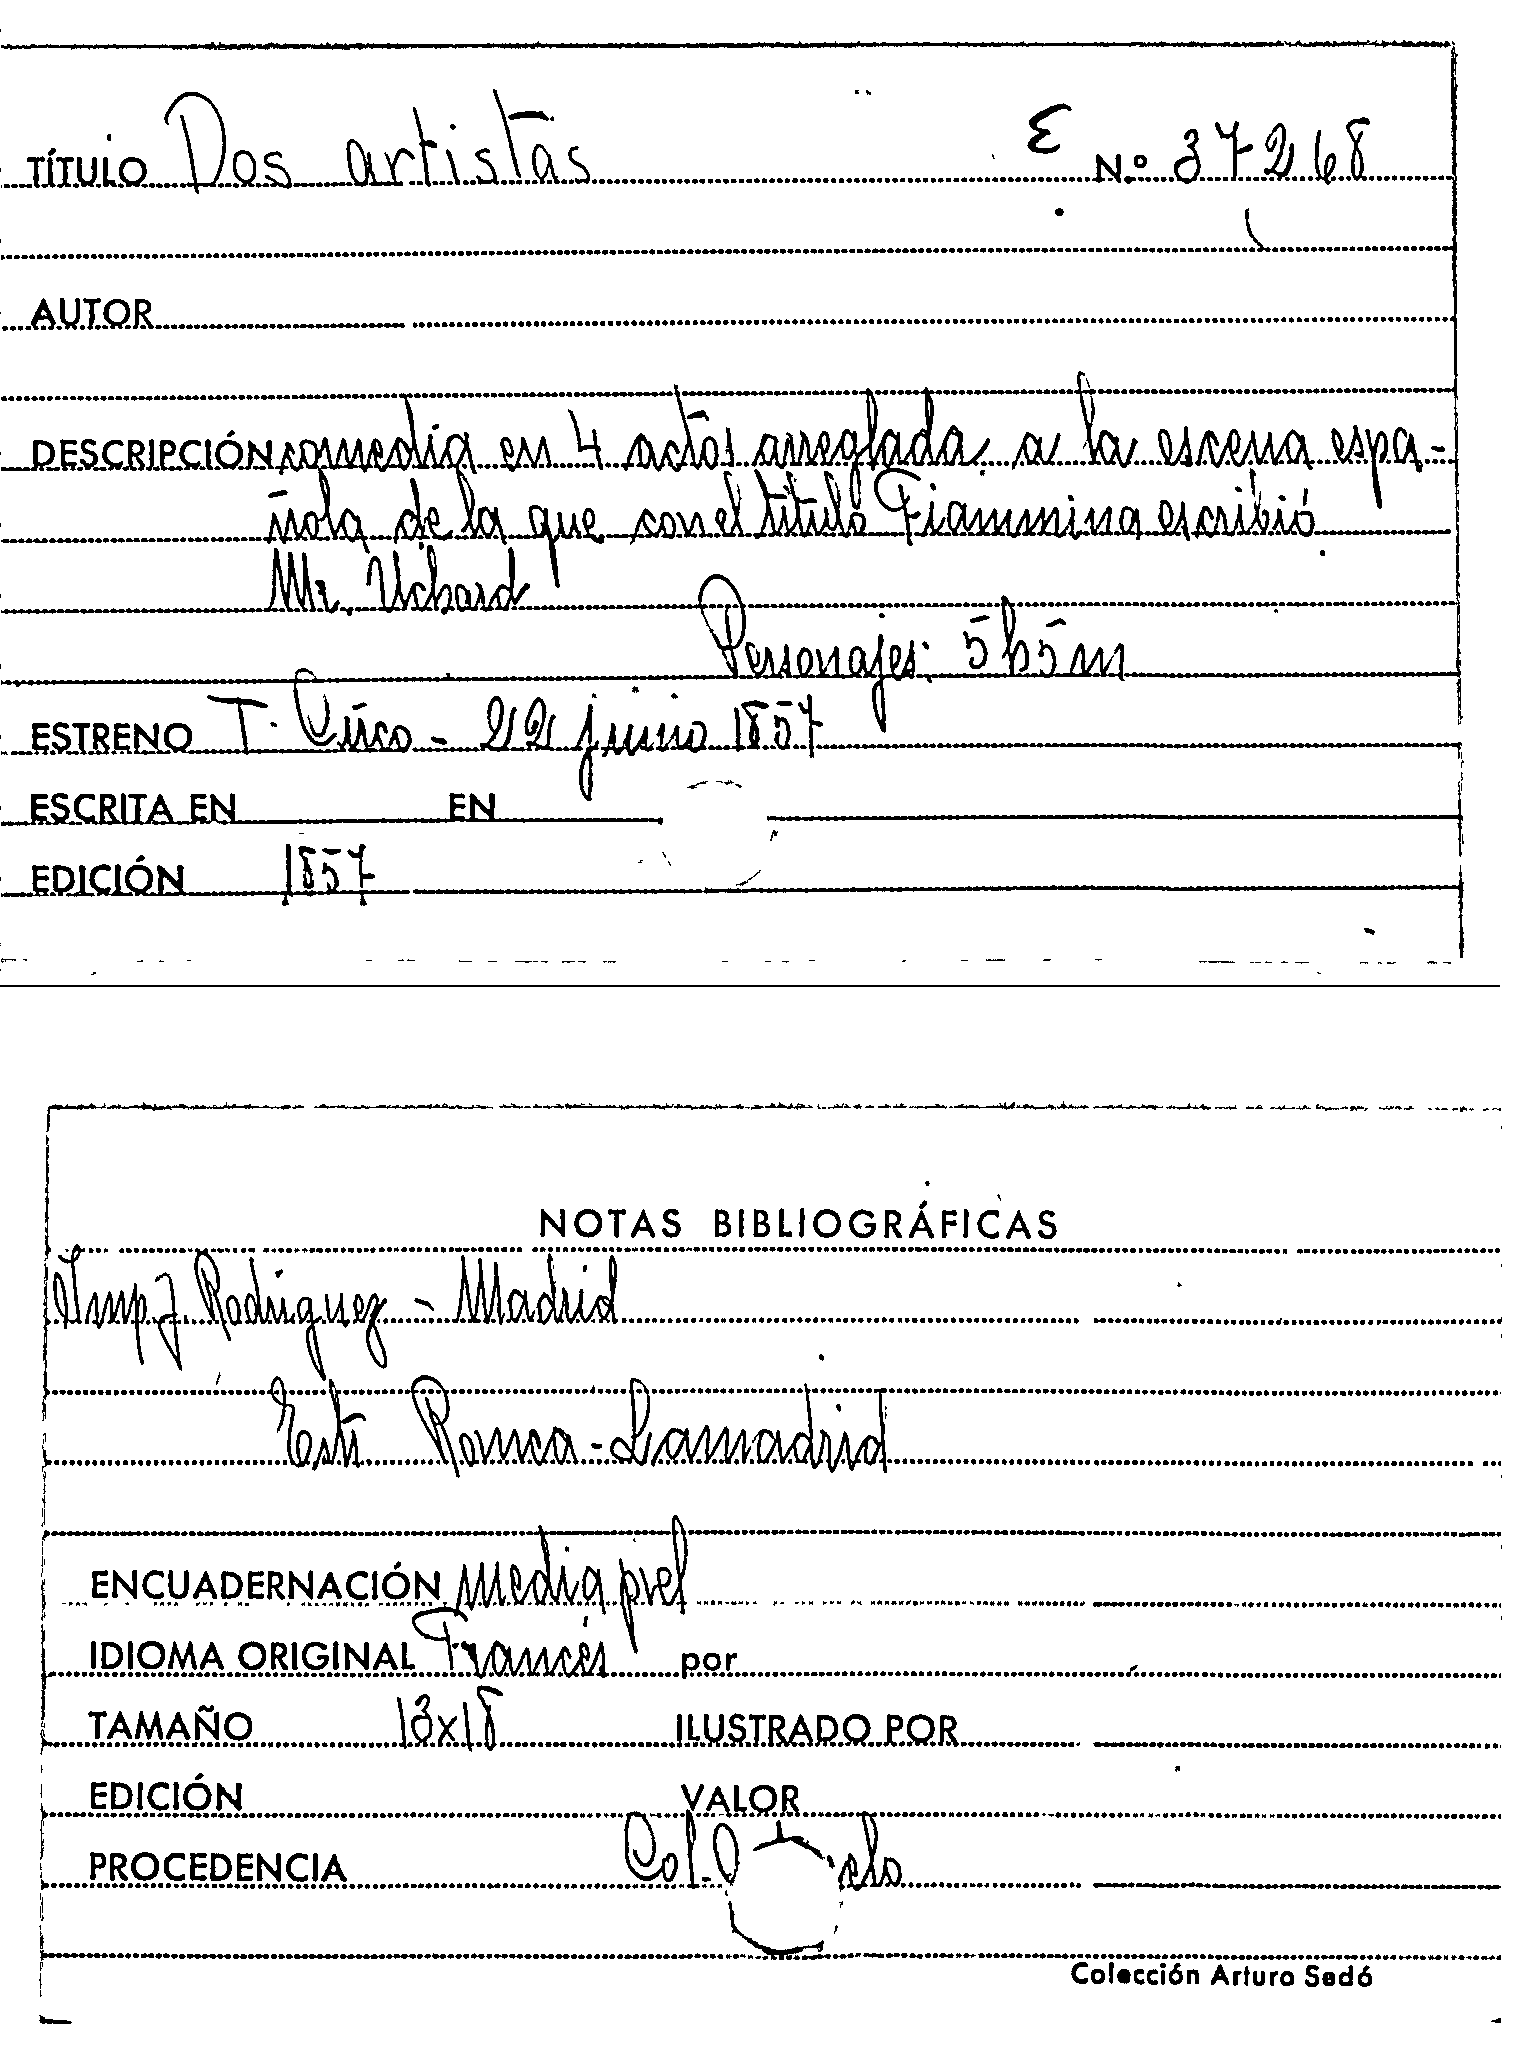 TÍTULO Dos artistas E N.º 37268
AUTOR
DESCRIPCIÓN comedia en 4 actos arreglada a la escena espa-
ñola de la que con el título Fiammina escribió
Mr. Uchard
Personajes: 5h5m
ESTRENO T. Circo - 22 junio 1857
ESCRITA EN EN
EDICIÓN 1857
NOTAS BIBLIOGRÁFICAS
Imp J. Rodriguez - Madrid
Estr Romea-Lamadrid
ENCUADERNACIÓN media piel
IDIOMA ORIGINAL Francés por
TAMAÑO 13x18 ILUSTRADO POR
EDICIÓN VALOR
PROCEDENCIA Col.
Colección Arturo Sedó